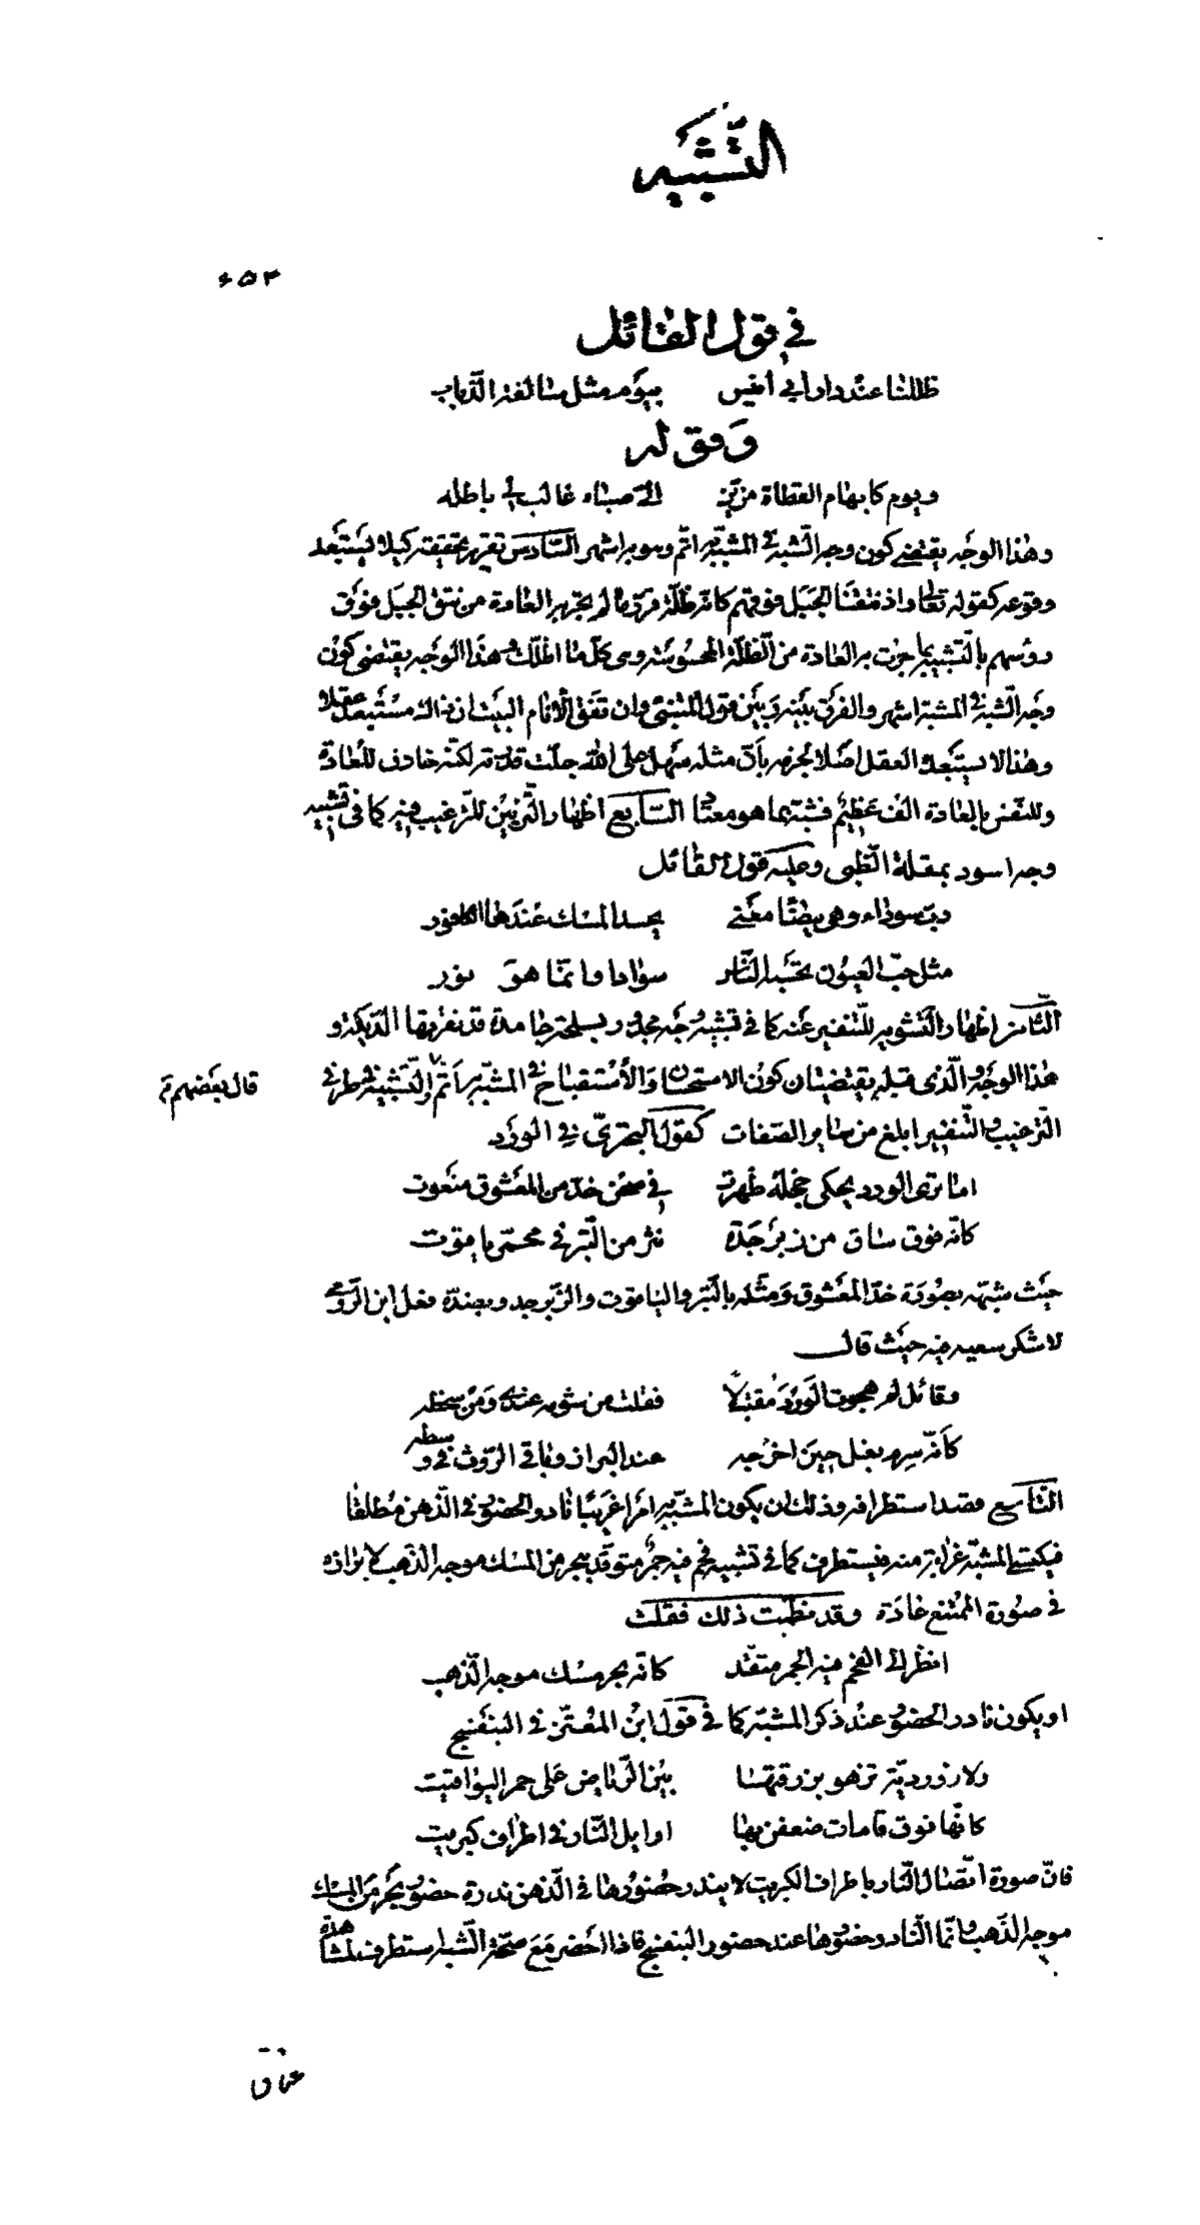 التشبيه
٤٥٣
في قول القائل
ظللنا عند دار أبي أنيس بيوم مثل سالفة الذباب
وقوله
ويوم كابهام القطاة مزين الى صباه غالب لي باطله
وهذا الوجه يقتضي كون وجه الشبه في المشبه به اتم وهو به اشهر السادس تقرير تحقيقه كيلا يستبعد
وقوعه كقوله تعالى واذ نتقنا الجبل فوقهم كانه ظلة فرد ما لم يجر به العادة من نتق الجبل فوق
رؤسهم بالتشبيه بما جرت به العادة من الظلة المحسوسة وهي كل ما اظلك وهذا الوجه يقتضي كون
وجه الشبه في المشبه به اشهر والفرق بينه وبين قول المتنبي وان تفق الأنام البيت ان ذاك مستبعد عقلا
وهذا لا يستبعده العقل اصلا لجزمه بأن مثله سهل على الله جلت قدرته لكنه خارق للعادة
وللنفس بالعادة الف عظيم فشبه بما هو معتاد السابع اظهار التزيين للترغيب فيه كما في تشبيه
وجه اسود بمقلة الظبي وعليه قول القائل
رب سوداء وهي بيضاء معنى يحسد المسك عندها الكافور
مثل حب العيون يحسبه الناس سوادا وانما هو نور
الثامن اظهار التشويه للتنفير عنه كما في تشبيه وجه مجدور بسلحة جامدة قد نقرتها الديكة و
هذا الوجه والذي قبله يقتضيان كون الاستحسان والأستقباح في المشبه به اتم والتشبيه في طرفي
قال بعضهم
الترغيب والتنفير ابلغ من ساير الصفات كقول البحتري في الورد
اما ترى الورد يحكي خجلة ظهرت في صحن خد من المعشوق منعوت
كانه فوق ساق من زبرجدة نثر من التبر في محمر ياقوت
حيث شبهه بصورة خد المعشوق ومثله بالتبر والياقوت والزبرجد وبضده فعل ابن الرومي
لا شكر سعيه فيه حيث قال
وقائل لم هجوت الورد مقتبلا فقلت من شومه عندي ومن سخطه
كأنه سرم بغل حين اخرجه عند البراز وباقي الروث في وسطه
التاسع قصد استطرافه وذلك ان يكون المشبه به امرا غريبا نادر الحضور في الذهن مطلقا
فيكتسي المشبه غرابة منه فيستطرف كما في تشبيه فحم فيه جمر متوقد ببحر من المسك موجه الذهب لابرازه
في صورة الممتنع عادة وقد نظمت ذلك فقلت
انظر الى الفحم فيه الجمر متقد كانه بحر مسك موجه الذهب
او يكون نادر الحضور عند ذكر المشبه كما في قول ابن المعتز في البنفسج
ولازوردية تزهو بزرقتها بين الرياض على حمر اليواقيت
كانها فوق قامات ضعفن بها اوايل النار في اطراف كبريت
فان صورة اتصال النار باطراف الكبريت لا يندر حضورها في الذهن ندرة حضور بحر من المسك
موجه الذهب وانما النادر حضورها عند حضور البنفسج فاذا احضر مع صحة الشبه استطرف لمشاهدة
عناق